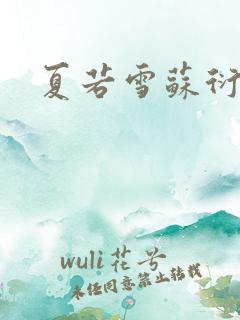 夏若雪蘇衍
wuli花兮
未经同意禁止转载